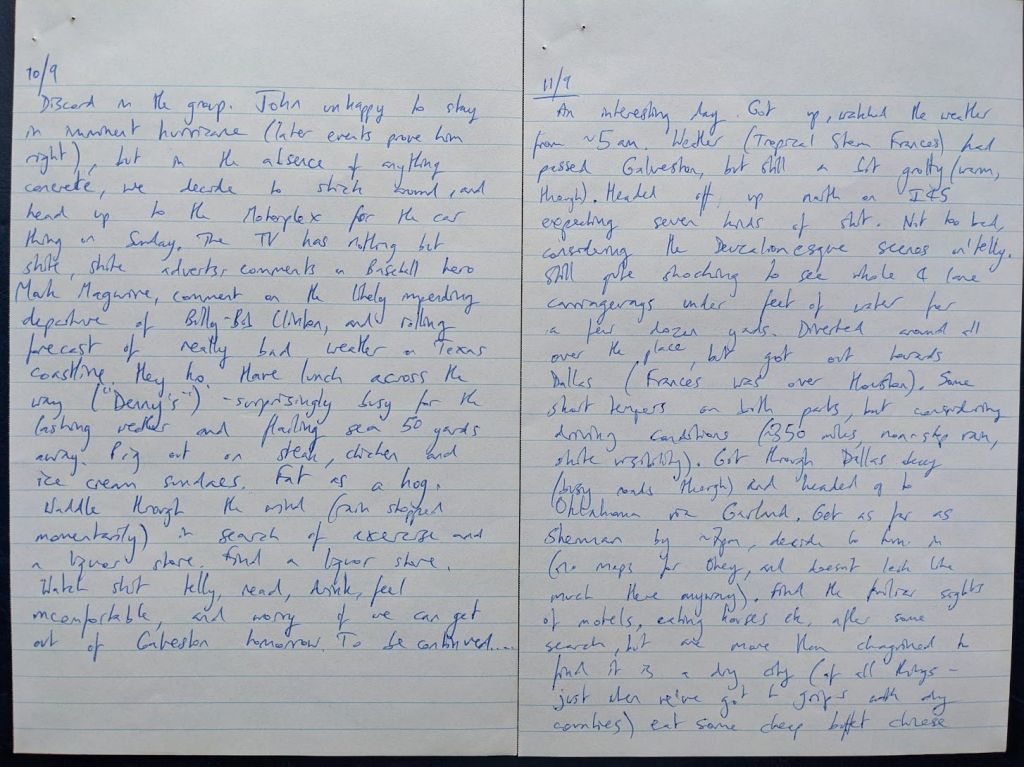 10/9
Discord in the group. John unhappy to stay
in imminent hurricane (later events prove him
right), but in the absence of anything
concrete, we decide to stick around, and
head up to the Motorplex for the car
thing on Sunday. The TV has nothing but
shite, shite adverts, comments on Baseball hero
Mark Magwire, comment on the likely impending
departure of Billy-Bob Clinton, and rolling
forecast of really bad weather on Texas
coastline. Hey ho. Have lunch across the
way ("Denny's") - surprisingly busy for the
lashing weather and flailing sea 50 yards
away. Pig out on steak, chicken and
ice cream sundaes. Fat as a hog.
Waddle through the wind (rain stopped
momentarily) in search of exercise and
a liquor store. Find a liquor store.
Watch shit telly, read, drink, feel
uncomfortable, and worry if we can get
out of Galveston tomorrow. To be continued.....
11/9
An interesting day. Got up, watched the weather
from ~5am. Weather (Tropical Storm Frances) had
passed Galveston, but still a bit grotty (warm,
though). Headed off, up north on I45
expecting seven kinds of shit. Not too bad,
considering the Deucalionesque scenes on telly.
Still quite shocking to see whole 4 lane
carriageways under feet of water for
a few dozen yards. Diverted around all
over the place, but got out towards
Dallas (Frances was over Houston). Some
short tempers on both parts, but considering
driving conditions (~350 miles, non-stop rain,
shite visibility). Got through Dallas okay
(busy roads though) and headed to
Oklahoma via Garland. Got as far as
Sherman by ~7pm, decide to turn in
(no maps for Okey, and doesn't look like
much there anyway). Find the familiar sights
of motels, eating houses etc, after some
search, but are more than chagrined to
find it is a dry city (of all things -
just when we've got to grips with dry
counties) eat some cheap buffet chinese